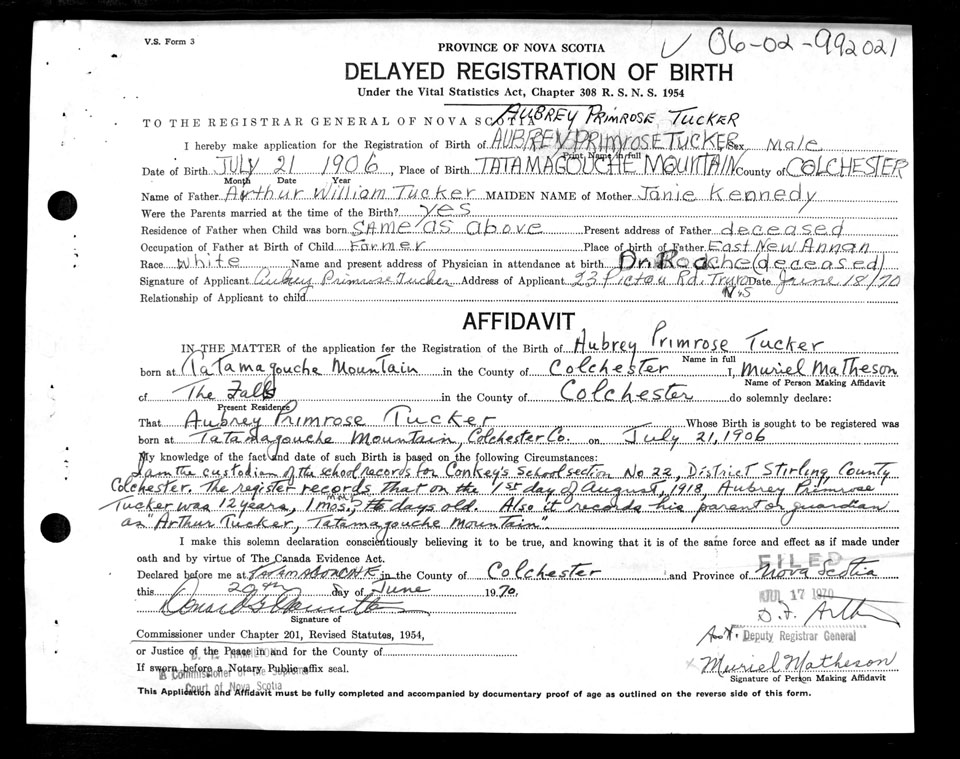 V.S. Form 3
PROVINCE OF NOVA SCOTIA
√ 06-02-992021
DELAYED REGISTRATION OF BIRTH
Under the Vital Statistics Act, Chapter 308 R. S. N. S. 1954
AUBREY PRIMROSE TUCKER
TO THE REGISTRAR GENERAL OF NOVA SCOTIA
I hereby make application for the Registration of Birth of AUBREY PRIMROSE TUCKER Sex Male
Print Name in full
Date of Birth JULY 21 1906, Place of Birth TATAMAGOUCHE MOUNTAIN County of COLCHESTER
Month Date Year
Name of Father Arthur William Tucker MAIDEN NAME of Mother Janie Kennedy
Were the Parents married at the time of the Birth? yes
Residence of Father when Child was born SAME as above Present address of Father deceased
Occupation of Father at Birth of Child Farmer Place of birth of Father East New Annan
Race White Name and present address of Physician in attendance at birth Dr. Roche (deceased)
Signature of Applicant Aubrey Primrose Tucker Address of Applicant 23 Pictou Rd. Truro Date June 18/70
N.S
Relationship of Applicant to child
AFFIDAVIT
IN THE MATTER of the application for the Registration of the Birth of Aubrey Primrose Tucker
Name in full
born at Tatamagouche Mountain in the County of Colchester I, Muriel Matheson
Name of Person Making Affidavit
of The Falls in the County of Colchester do solemnly declare:
Present Residence
That Aubrey Primrose Tucker Whose Birth is sought to be registered was
born at Tatamagouche Mountain, Colchester Co. on July 21, 1906
My knowledge of the fact and date of such Birth is based on the following Circumstances:
I am the custodian of the school records for Conkey's School section No 22, District Stirling, County
Colchester. The register records that on the 1st day of August, 1918, Aubrey Primrose
Tucker was 12 years, 1 mos., days old. Also it records his parent or guardian
as "Arthur Tucker, Tatamagouche Mountain"
I make this solemn declaration conscientiously believing it to be true, and knowing that it is of the same force and effect as if made under
oath and by virtue of The Canada Evidence Act.
Declared before me at in the County of Colchester and Province of Nova Scotia
this 20th day of June 1970.
FILED
JUL 17 1970
Signature of
Commissioner under Chapter 201, Revised Statutes, 1954,
Asst. Deputy Registrar General
or Justice of the Peace in and for the County of
If sworn before a Notary Public affix seal.
A Commissioner of the Supreme
Court of Nova Scotia
Muriel Matheson
Signature of Person Making Affidavit
This Application and Affidavit must be fully completed and accompanied by documentary proof of age as outlined on the reverse side of this form.